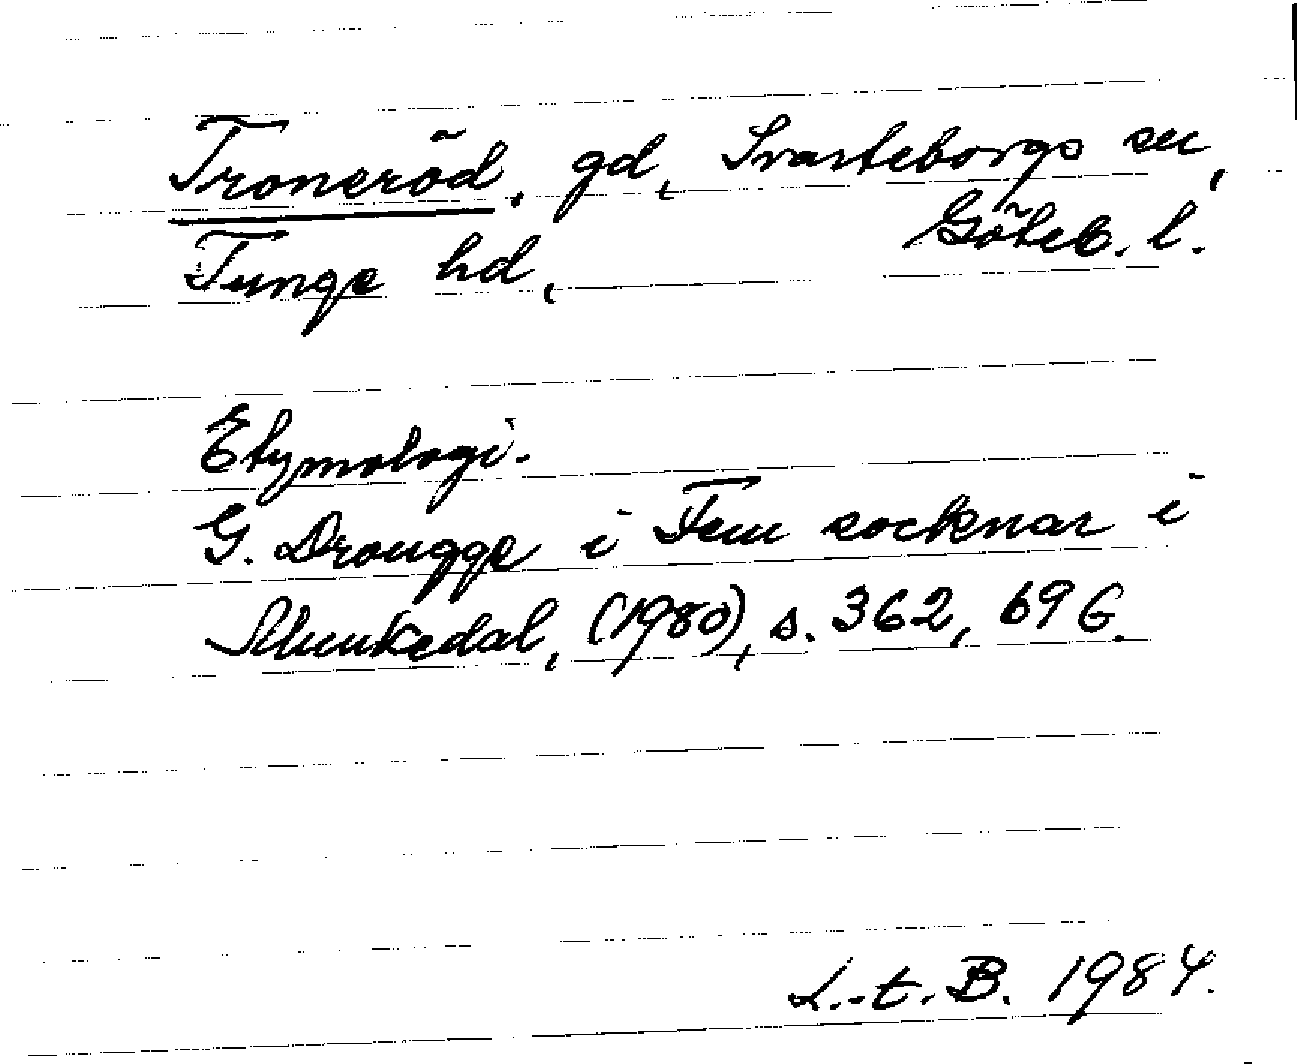 Troneröd, gd, Svarteborgs sn,
Tunge hd, Göteb. l.
Etymologi.
G. Drougge i Fem socknar i
Munkedal, (1980), s. 362, 696.
L.-t. B. 1984.